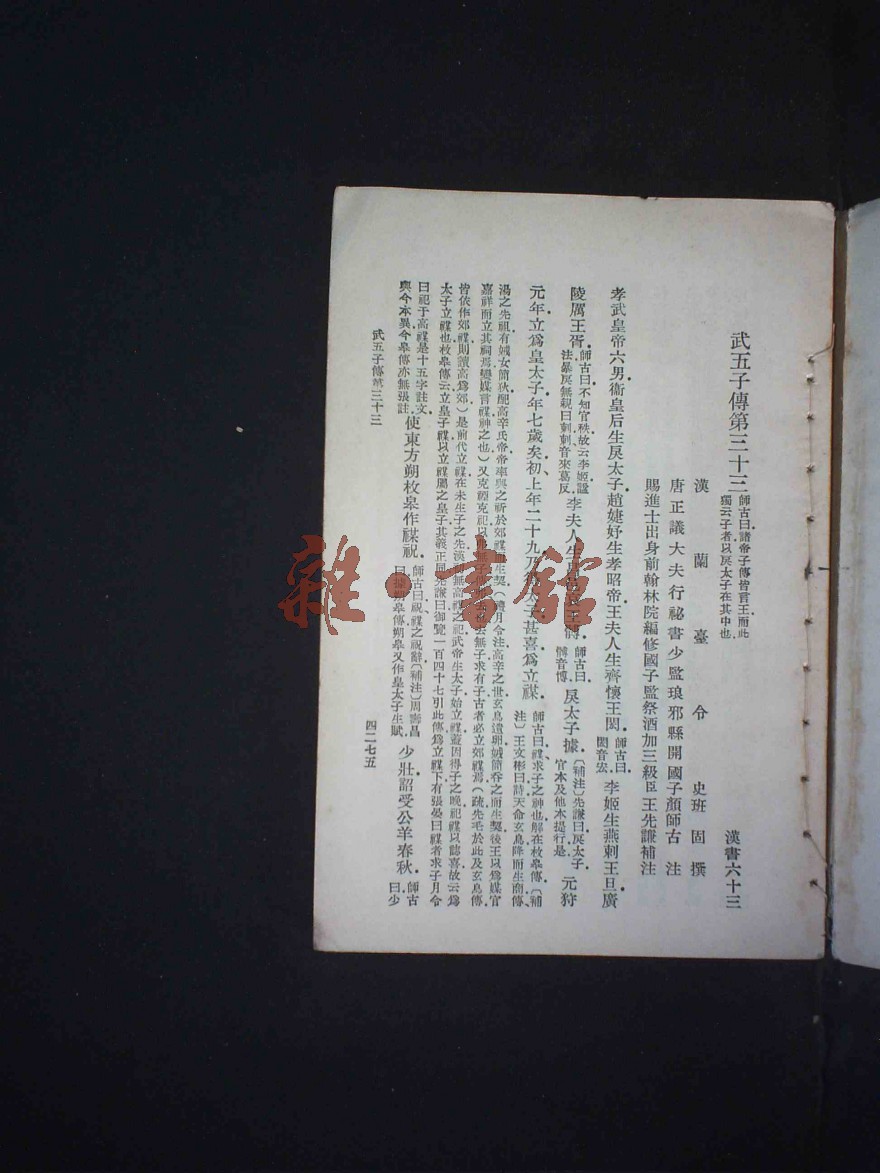 武五子傳第三十三 師古曰諸帝子傳皆言王而此獨云子者以戾太子在其中也 漢書六十三
漢蘭臺令史班固撰
唐正議大夫行祕書少監琅邪縣開國子顏師古注
賜進士出身前翰林院編修國子監祭酒加三級臣王先謙補注
孝武皇帝六男衞皇后生戾太子趙婕妤生孝昭帝王夫人生齊懷王閎 師古曰閎音宏 李姬生燕剌王旦廣
陵厲王胥 師古曰不知官秩故云李姬諡法暴戾無親曰剌剌音來葛反 李夫人生昌邑哀王髆 師古曰髆音博 戾太子據 〔補注〕先謙曰戾太子官本及他本提行是 元狩
元年立爲皇太子年七歲矣初上年二十九乃得太子甚喜爲立禖 師古曰禖求子之神也解在枚皋傳〔補注〕王文彬曰詩天命玄鳥降而生商傳
湯之先祖有娀女簡狄配高辛氏帝帝率與之祈於郊禖而生契(月令注高辛之世玄鳥遺卵娀簡呑之而生契後王以爲媒官
嘉祥而立其祠焉變媒言禖神之也)又克禋克祀以弗無子傳弗去也去無子求有子古者必立郊禖焉(疏先毛於此及玄鳥傳
皆依作郊禖則讀高爲郊)是前代立禖在未生子之先漢無高禖之祀武帝生太子始立禖蓋因得子之晚祀禖以誌喜故云爲
太子立禖也枚皋傳云立皇子禖以立禖屬之皇子其義正同先謙曰御覽一百四十七引此傳爲立禖下有張晏曰禖者求子月令
曰祀于高禖是十五字註文與今本異今皋傳亦無張註 使東方朔枚皋作禖祝 師古曰祝禖之祝辭〔補注〕周壽昌曰據朔皋傳朔皋又作皇太子生賦 少壯詔受公羊春秋 師古曰少
武五子傳第三十三
四二七五
雜·書館